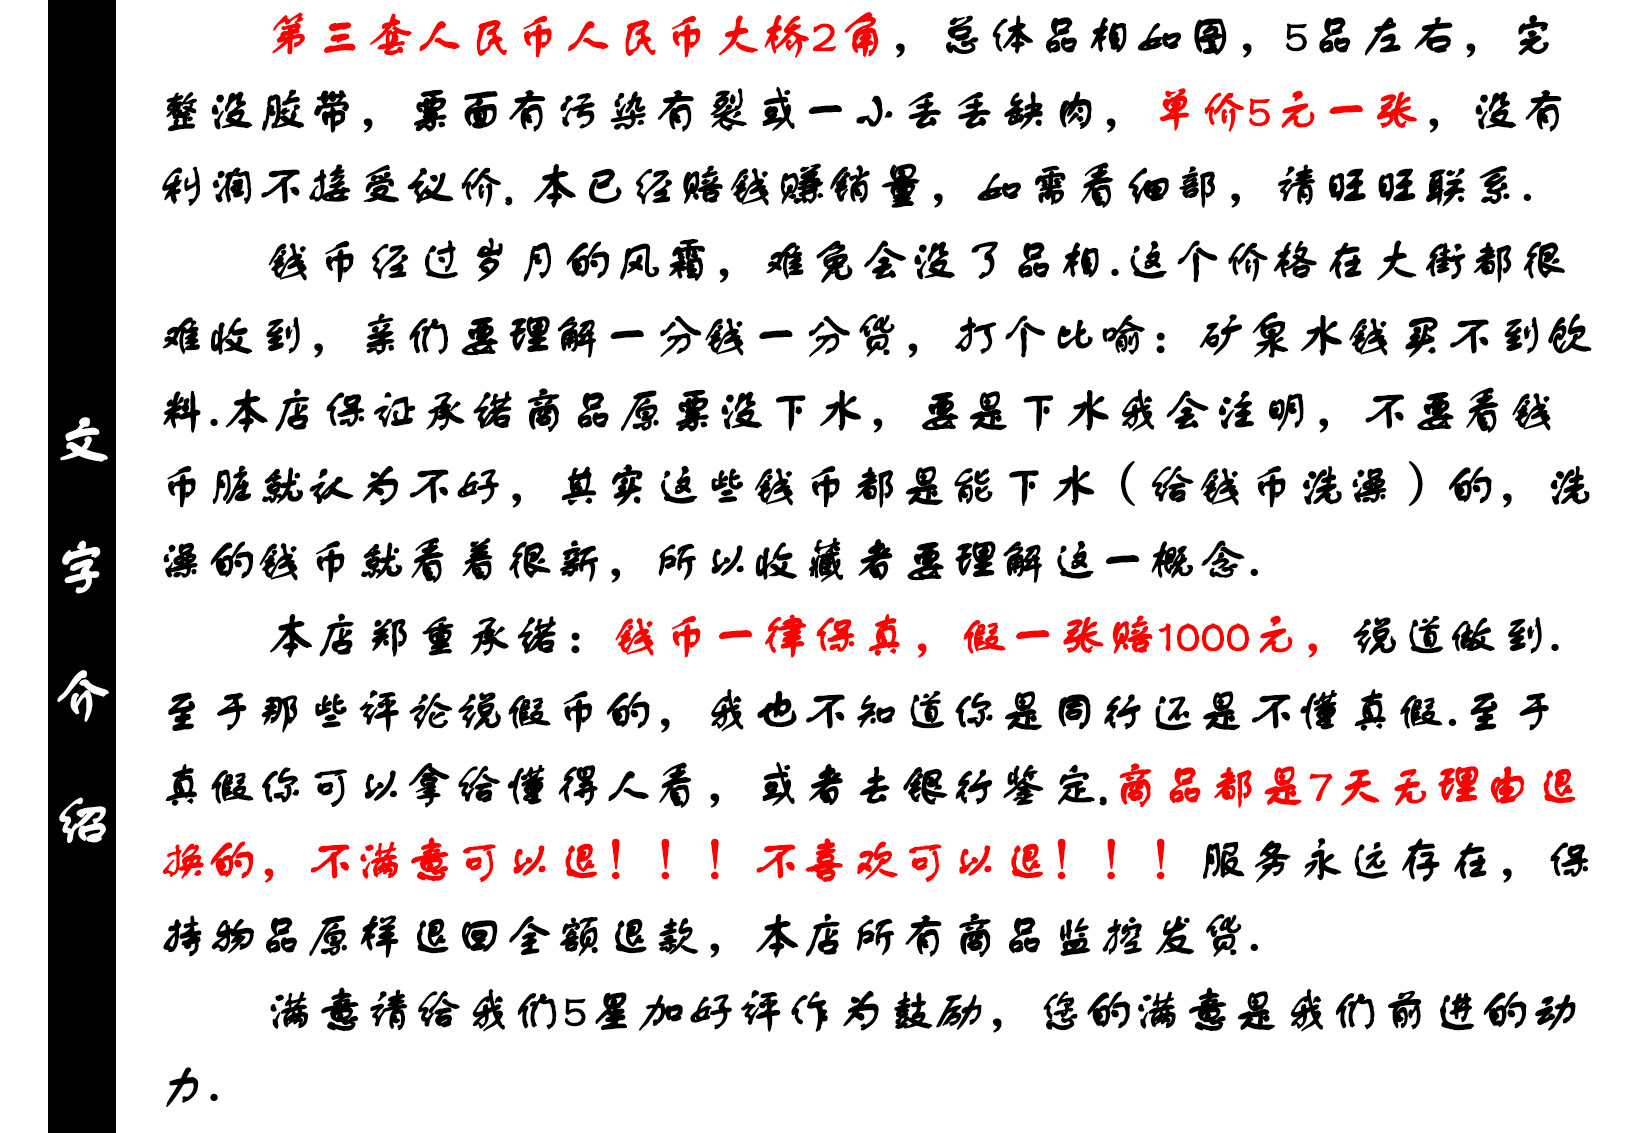 文字介绍
第三套人民币人民币大桥2角，总体品相如图，5品左右，完
整没胶带，票面有污染有裂或一小丢丢缺肉，单价5元一张，没有
利润不接受议价.本已经赔钱赚销量，如需看细部，请旺旺联系.
钱币经过岁月的风霜，难免会没了品相.这个价格在大街都很
难收到，亲们要理解一分钱一分货，打个比喻：矿泉水钱买不到饮
料.本店保证承诺商品原票没下水，要是下水我会注明，不要看钱
币脏就认为不好，其实这些钱币都是能下水（给钱币洗澡）的，洗
澡的钱币就看着很新，所以收藏者要理解这一概念.
本店郑重承诺：钱币一律保真，假一张赔1000元，说道做到.
至于那些评论说假币的，我也不知道你是同行还是不懂真假.至于
真假你可以拿给懂得人看，或者去银行鉴定.商品都是7天无理由退
换的，不满意可以退！！！不喜欢可以退！！！服务永远存在，保
持物品原样退回全额退款，本店所有商品监控发货.
满意请给我们5星加好评作为鼓励，您的满意是我们前进的动
力.